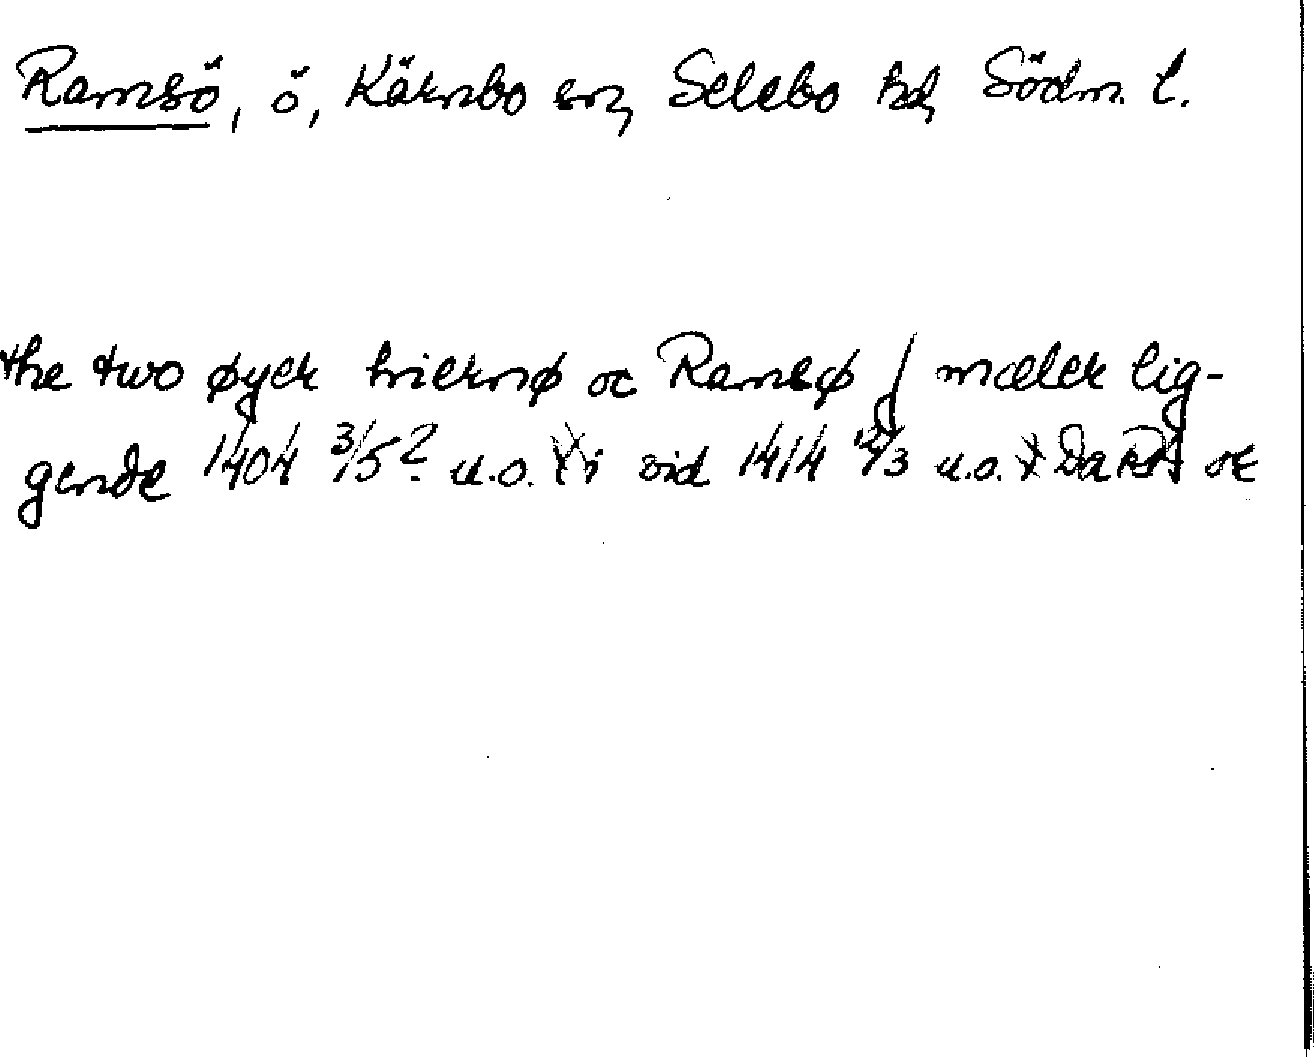 Ramsö, ö, Kärnbo sn, Selebo hd, Södm. l.
the two øyer hriernø oc Ramsø j mæler lig-
gende 1404 3/5? u.o. i vid 1414 /3 u.o. DaRA or